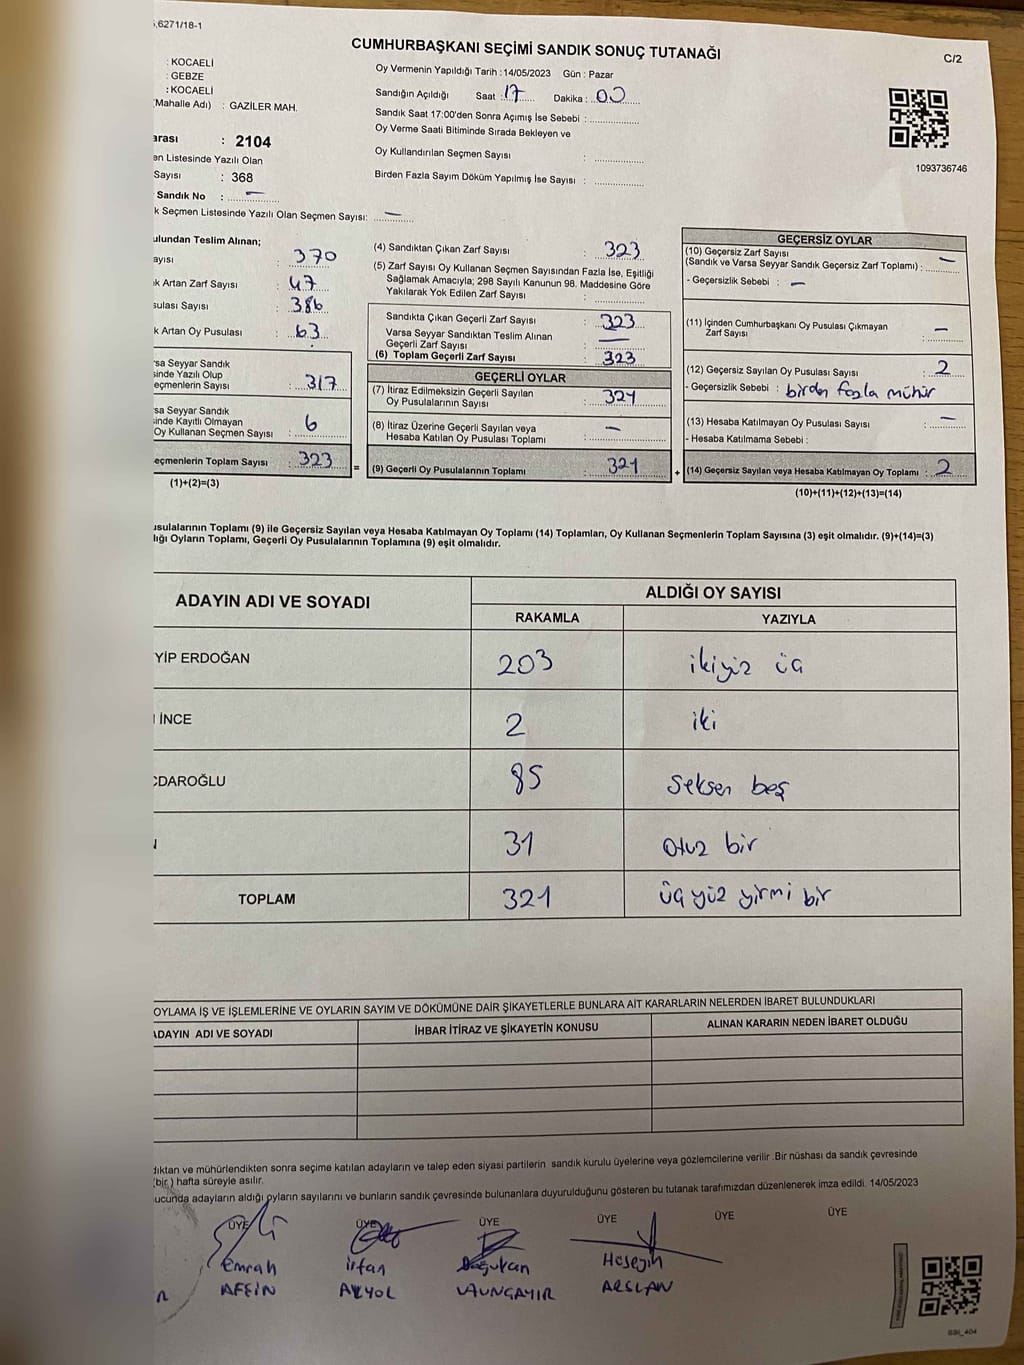 .6271/18-1
CUMHURBAŞKANI SEÇİMİ SANDIK SONUÇ TUTANAĞI
C/2
: KOCAELİ
: GEBZE
: KOCAELİ
(Mahalle Adı) : GAZİLER MAH.
Oy Vermenin Yapıldığı Tarih : 14/05/2023 Gün : Pazar
Sandığın Açıldığı Saat : 17 Dakika : 00
Sandık Saat 17:00'den Sonra Açımış İse Sebebi :
Oy Verme Saati Bitiminde Sırada Bekleyen ve
Oy Kullandırılan Seçmen Sayısı :
Birden Fazla Sayım Döküm Yapılmış İse Sayısı :
1093736746
arası : 2104
en Listesinde Yazılı Olan
Sayısı : 368
Sandık No : —
k Seçmen Listesinde Yazılı Olan Seçmen Sayısı: —
ulundan Teslim Alınan;
ayısı : 370
k Artan Zarf Sayısı : 47
sulası Sayısı : 386
k Artan Oy Pusulası : 63
rsa Seyyar Sandık
sinde Yazılı Olup
eçmenlerin Sayısı : 317
sa Seyyar Sandık
inde Kayıtlı Olmayan
Oy Kullanan Seçmen Sayısı : 6
eçmenlerin Toplam Sayısı : 323 =
(1)+(2)=(3)
(4) Sandıktan Çıkan Zarf Sayısı : 323
(5) Zarf Sayısı Oy Kullanan Seçmen Sayısından Fazla İse, Eşitliği
Sağlamak Amacıyla; 298 Sayılı Kanunun 98. Maddesine Göre
Yakılarak Yok Edilen Zarf Sayısı :
Sandıkta Çıkan Geçerli Zarf Sayısı : 323
Varsa Seyyar Sandıktan Teslim Alınan
Geçerli Zarf Sayısı : —
(6) Toplam Geçerli Zarf Sayısı : 323
GEÇERLİ OYLAR
(7) İtiraz Edilmeksizin Geçerli Sayılan
Oy Pusulalarının Sayısı : 321
(8) İtiraz Üzerine Geçerli Sayılan veya
Hesaba Katılan Oy Pusulası Toplamı : —
(9) Geçerli Oy Pusulalarının Toplamı : 321 +
GEÇERSİZ OYLAR
(10) Geçersiz Zarf Sayısı
(Sandık ve Varsa Seyyar Sandık Geçersiz Zarf Toplamı) : —
- Geçersizlik Sebebi : —
(11) İçinden Cumhurbaşkanı Oy Pusulası Çıkmayan
Zarf Sayısı : —
(12) Geçersiz Sayılan Oy Pusulası Sayısı : 2
- Geçersizlik Sebebi : birden fazla mühür
(13) Hesaba Katılmayan Oy Pusulası Sayısı : —
- Hesaba Katılmama Sebebi :
(14) Geçersiz Sayılan veya Hesaba Katılmayan Oy Toplamı : 2
(10)+(11)+(12)+(13)=(14)
usulalarının Toplamı (9) ile Geçersiz Sayılan veya Hesaba Katılmayan Oy Toplamı (14) Toplamları, Oy Kullanan Seçmenlerin Toplam Sayısına (3) eşit olmalıdır. (9)+(14)=(3)
lığı Oyların Toplamı, Geçerli Oy Pusulalarının Toplamına (9) eşit olmalıdır.
ADAYIN ADI VE SOYADI
ALDIĞI OY SAYISI
RAKAMLA YAZIYLA
YİP ERDOĞAN 203 ikiyüz üç
İNCE 2 iki
ÇDAROĞLU 85 seksen beş
31 otuz bir
TOPLAM 321 üç yüz yirmi bir
OYLAMA İŞ VE İŞLEMLERİNE VE OYLARIN SAYIM VE DÖKÜMÜNE DAİR ŞİKAYETLERLE BUNLARA AİT KARARLARIN NELERDEN İBARET BULUNDUKLARI
ADAYIN ADI VE SOYADI İHBAR İTİRAZ VE ŞİKAYETİN KONUSU ALINAN KARARIN NEDEN İBARET OLDUĞU
dıktan ve mühürlendikten sonra seçime katılan adayların ve talep eden siyasi partilerin sandık kurulu üyelerine veya gözlemcilerine verilir .Bir nüshası da sandık çevresinde
(bir ) hafta süreyle asılır.
ucunda adayların aldığı oyların sayılarını ve bunların sandık çevresinde bulunanlara duyurulduğunu gösteren bu tutanak tarafımızdan düzenlenerek imza edildi. 14/05/2023
ÜYE ÜYE ÜYE ÜYE ÜYE ÜYE
Emrah İrfan Doğukan Hüseyin
AFŞİN AKYOL ARSLAN